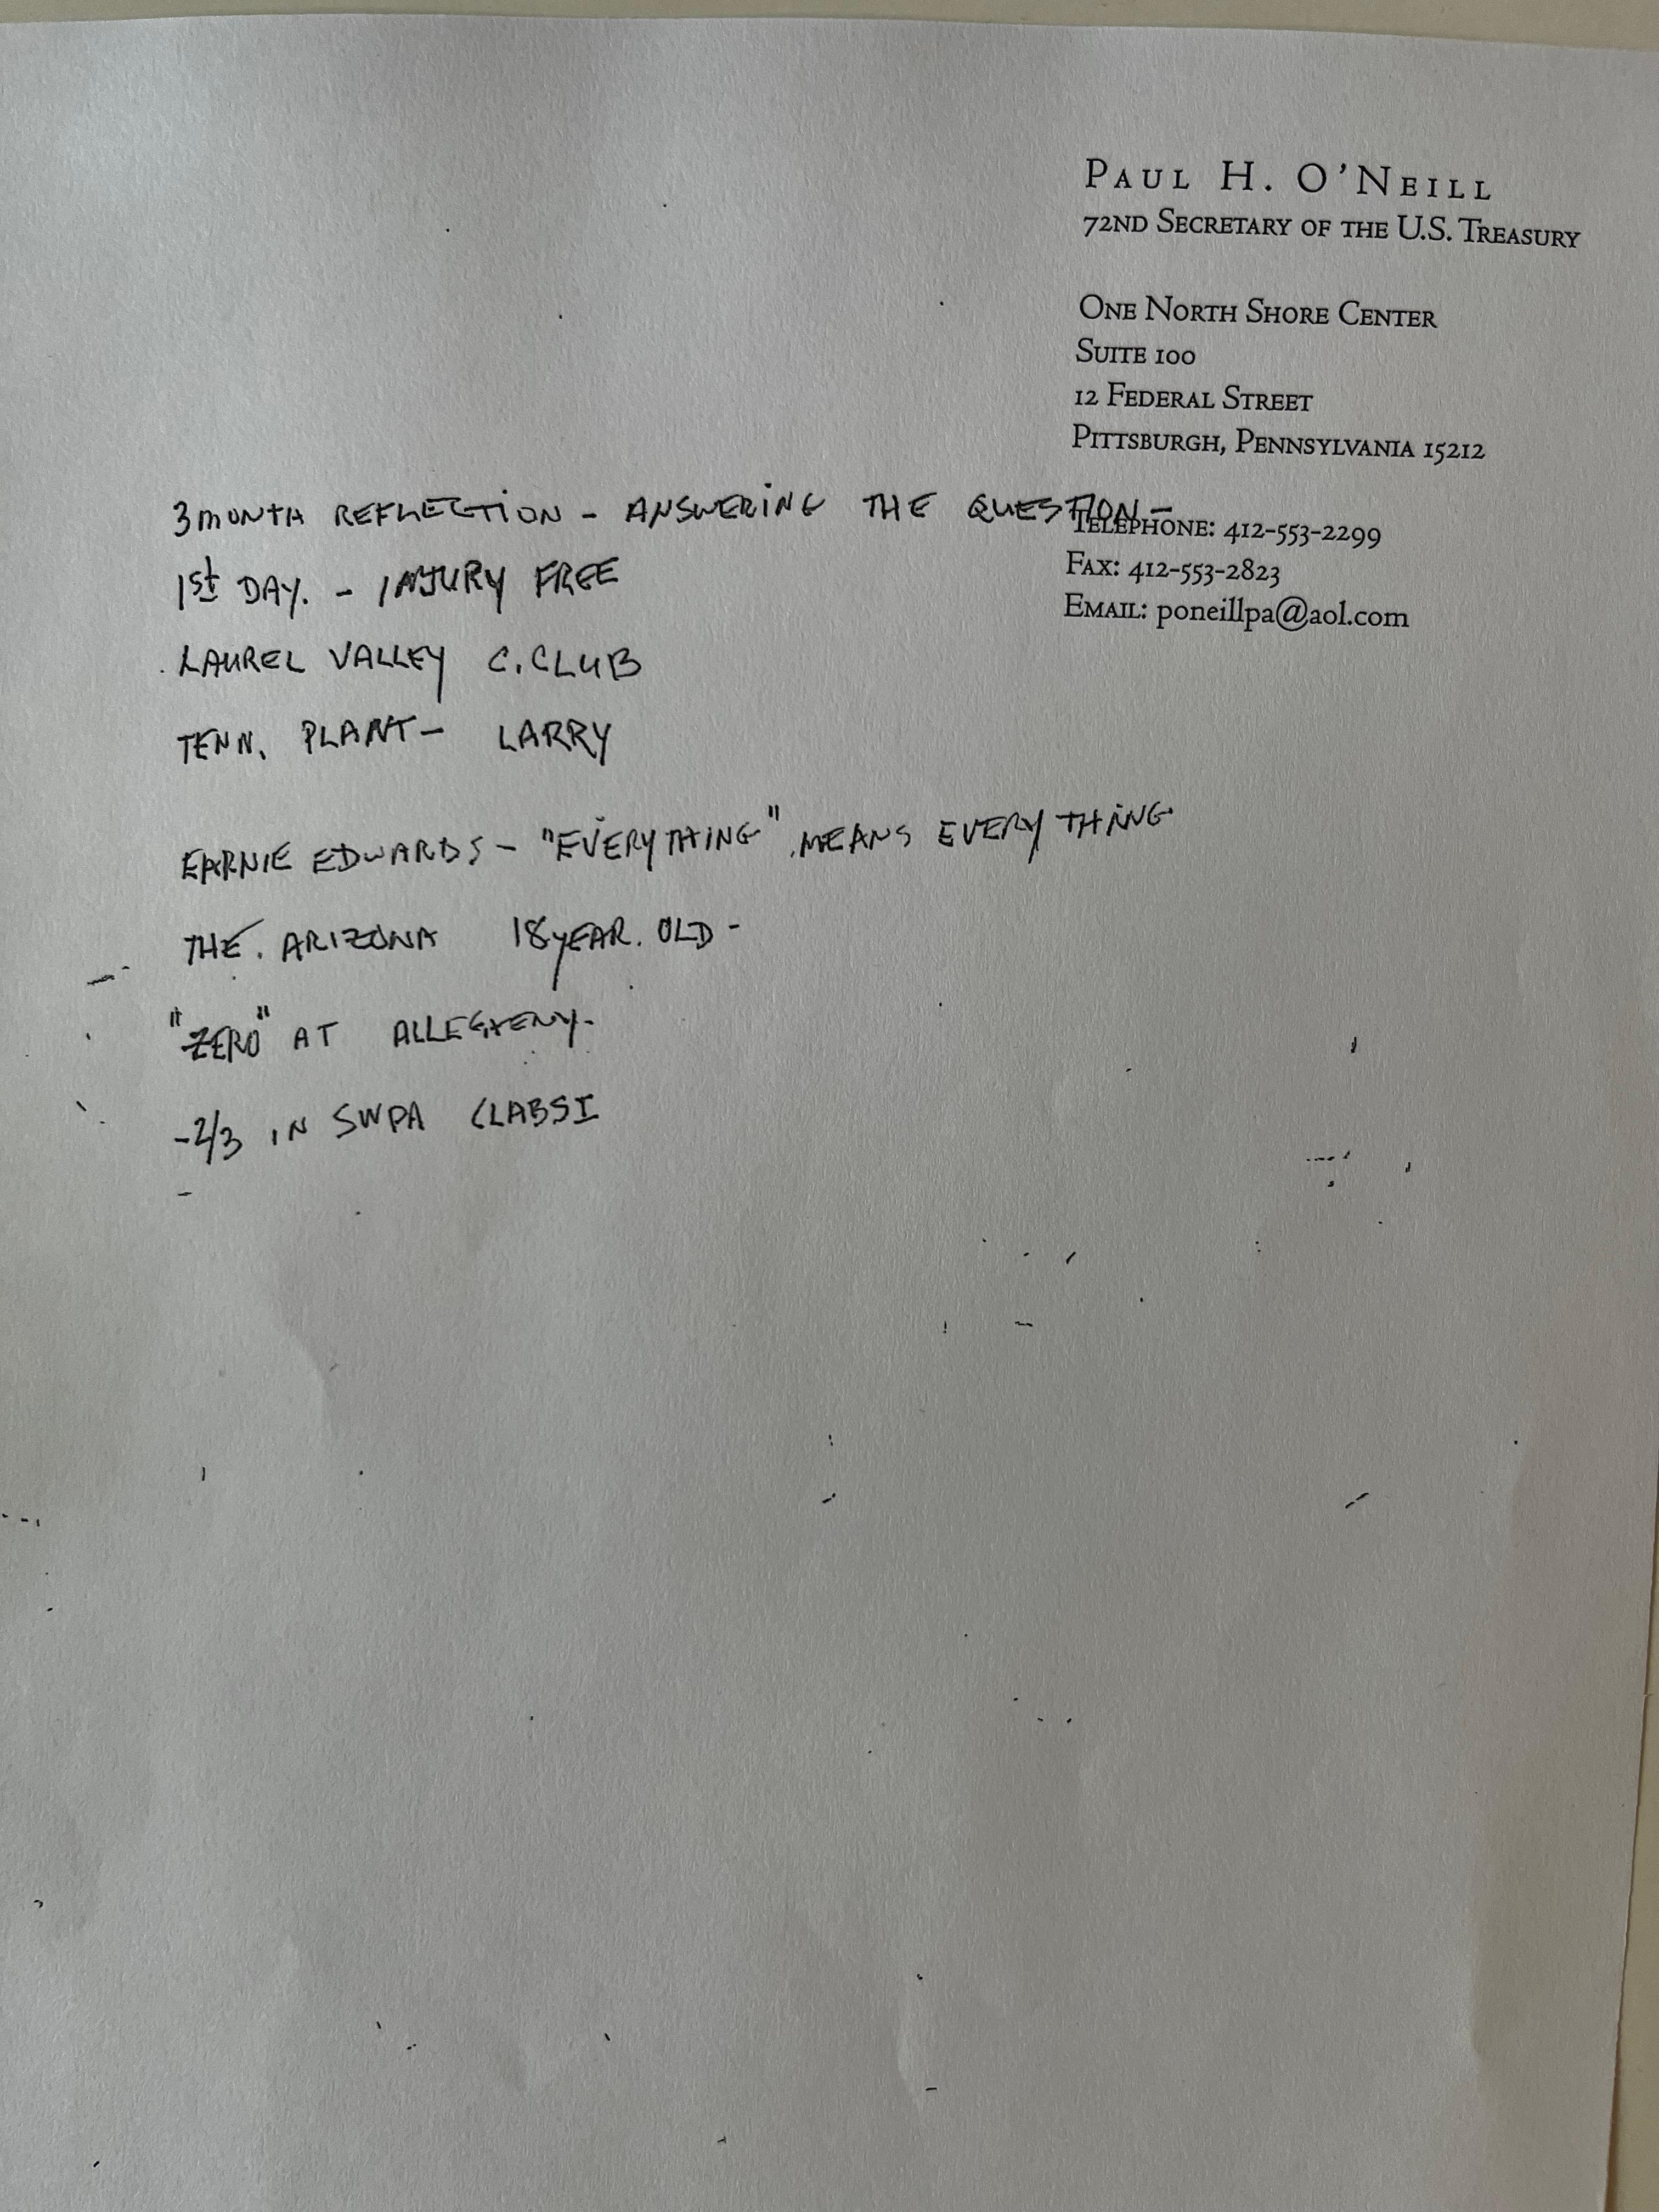 PAUL H. O'NEILL
72ND SECRETARY OF THE U.S. TREASURY
ONE NORTH SHORE CENTER
SUITE 100
12 FEDERAL STREET
PITTSBURGH, PENNSYLVANIA 15212
TELEPHONE: 412-553-2299
FAX: 412-553-2823
EMAIL: poneillpa@aol.com
3 MONTH REFLECTION - ANSWERING THE QUESTION -
1st DAY. - INJURY FREE
LAUREL VALLEY C. CLUB
TENN. PLANT - LARRY
EARNIE EDWARDS - "EVERYTHING" MEANS EVERYTHING
THE ARIZONA 18 YEAR OLD -
"ZERO" AT ALLEGHENY.
-2/3 IN SWPA CLABSI
-